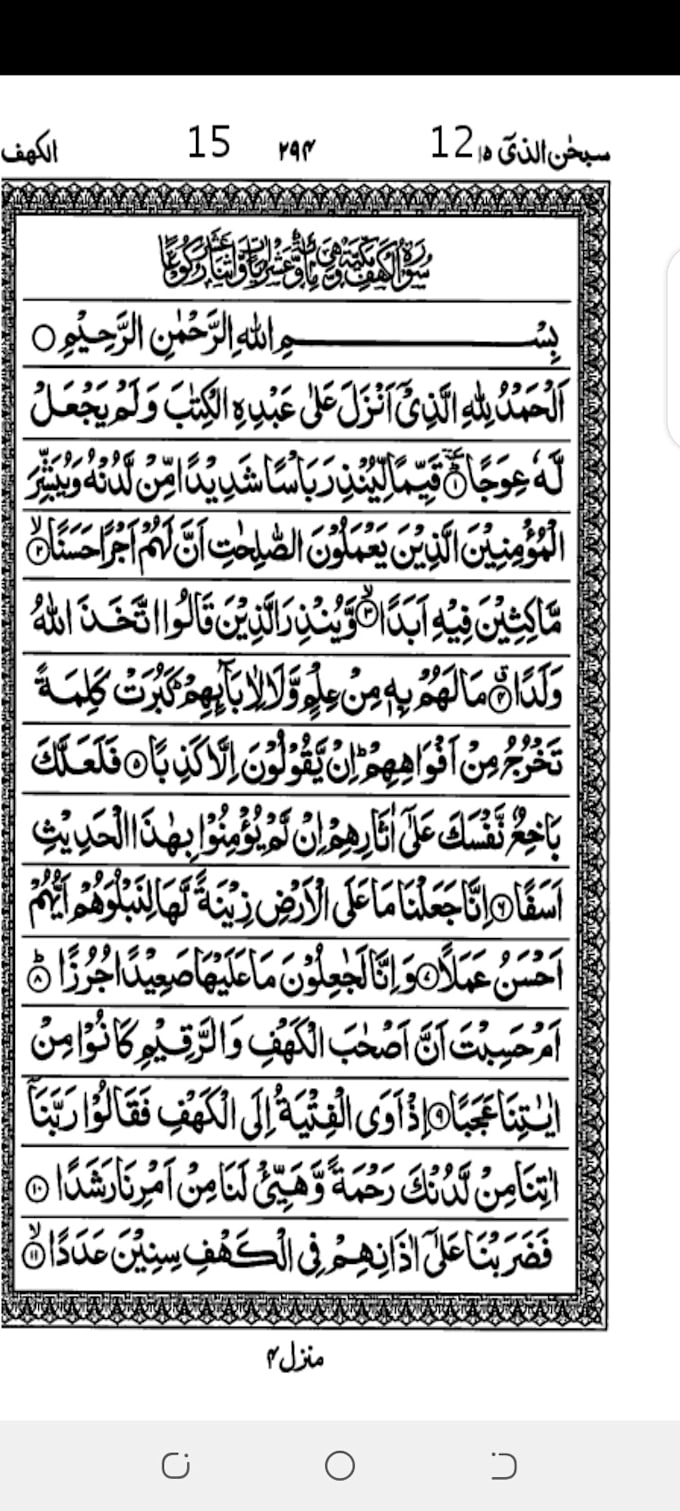 سبحٰن الذیٓ ۱۵ 12 ۲۹۴ 15 الكهف
سُوْرَةُ الْكَهْفِ مَكِّيَّةٌ وَّهِيَ مِائَةٌ وَّعَشْرُ اٰيَاتٍ وَّاثْنَا عَشَرَ رُكُوْعًا
بِسْمِ اللهِ الرَّحْمٰنِ الرَّحِيْمِ ○
اَلْحَمْدُ لِلّٰهِ الَّذِيْۤ اَنْزَلَ عَلٰى عَبْدِهِ الْكِتٰبَ وَلَمْ يَجْعَلْ
لَّهٗ عِوَجًا ۱ قَيِّمًا لِّيُنْذِرَ بَاْسًا شَدِيْدًا مِّنْ لَّدُنْهُ وَيُبَشِّرَ
الْمُؤْمِنِيْنَ الَّذِيْنَ يَعْمَلُوْنَ الصّٰلِحٰتِ اَنَّ لَهُمْ اَجْرًا حَسَنًا ۙ ۲
مَّاكِثِيْنَ فِيْهِ اَبَدًا ۙ ۳ وَّيُنْذِرَ الَّذِيْنَ قَالُوا اتَّخَذَ اللهُ
وَلَدًا ۴ مَا لَهُمْ بِهٖ مِنْ عِلْمٍ وَّلَا لِاٰبَآئِهِمْ ؕ كَبُرَتْ كَلِمَةً
تَخْرُجُ مِنْ اَفْوَاهِهِمْ ؕ اِنْ يَّقُوْلُوْنَ اِلَّا كَذِبًا ۵ فَلَعَلَّكَ
بَاخِعٌ نَّفْسَكَ عَلٰۤى اٰثَارِهِمْ اِنْ لَّمْ يُؤْمِنُوْا بِهٰذَا الْحَدِيْثِ
اَسَفًا ۶ اِنَّا جَعَلْنَا مَا عَلَى الْاَرْضِ زِيْنَةً لَّهَا لِنَبْلُوَهُمْ اَيُّهُمْ
اَحْسَنُ عَمَلًا ۷ وَاِنَّا لَجٰعِلُوْنَ مَا عَلَيْهَا صَعِيْدًا جُرُزًا ؕ ۸
اَمْ حَسِبْتَ اَنَّ اَصْحٰبَ الْكَهْفِ وَالرَّقِيْمِ كَانُوْا مِنْ
اٰيٰتِنَا عَجَبًا ۹ اِذْ اَوَى الْفِتْيَةُ اِلَى الْكَهْفِ فَقَالُوْا رَبَّنَاۤ
اٰتِنَا مِنْ لَّدُنْكَ رَحْمَةً وَّهَيِّئْ لَنَا مِنْ اَمْرِنَا رَشَدًا ۱۰
فَضَرَبْنَا عَلٰۤى اٰذَانِهِمْ فِي الْكَهْفِ سِنِيْنَ عَدَدًا ۙ ۱۱
منزل ۴